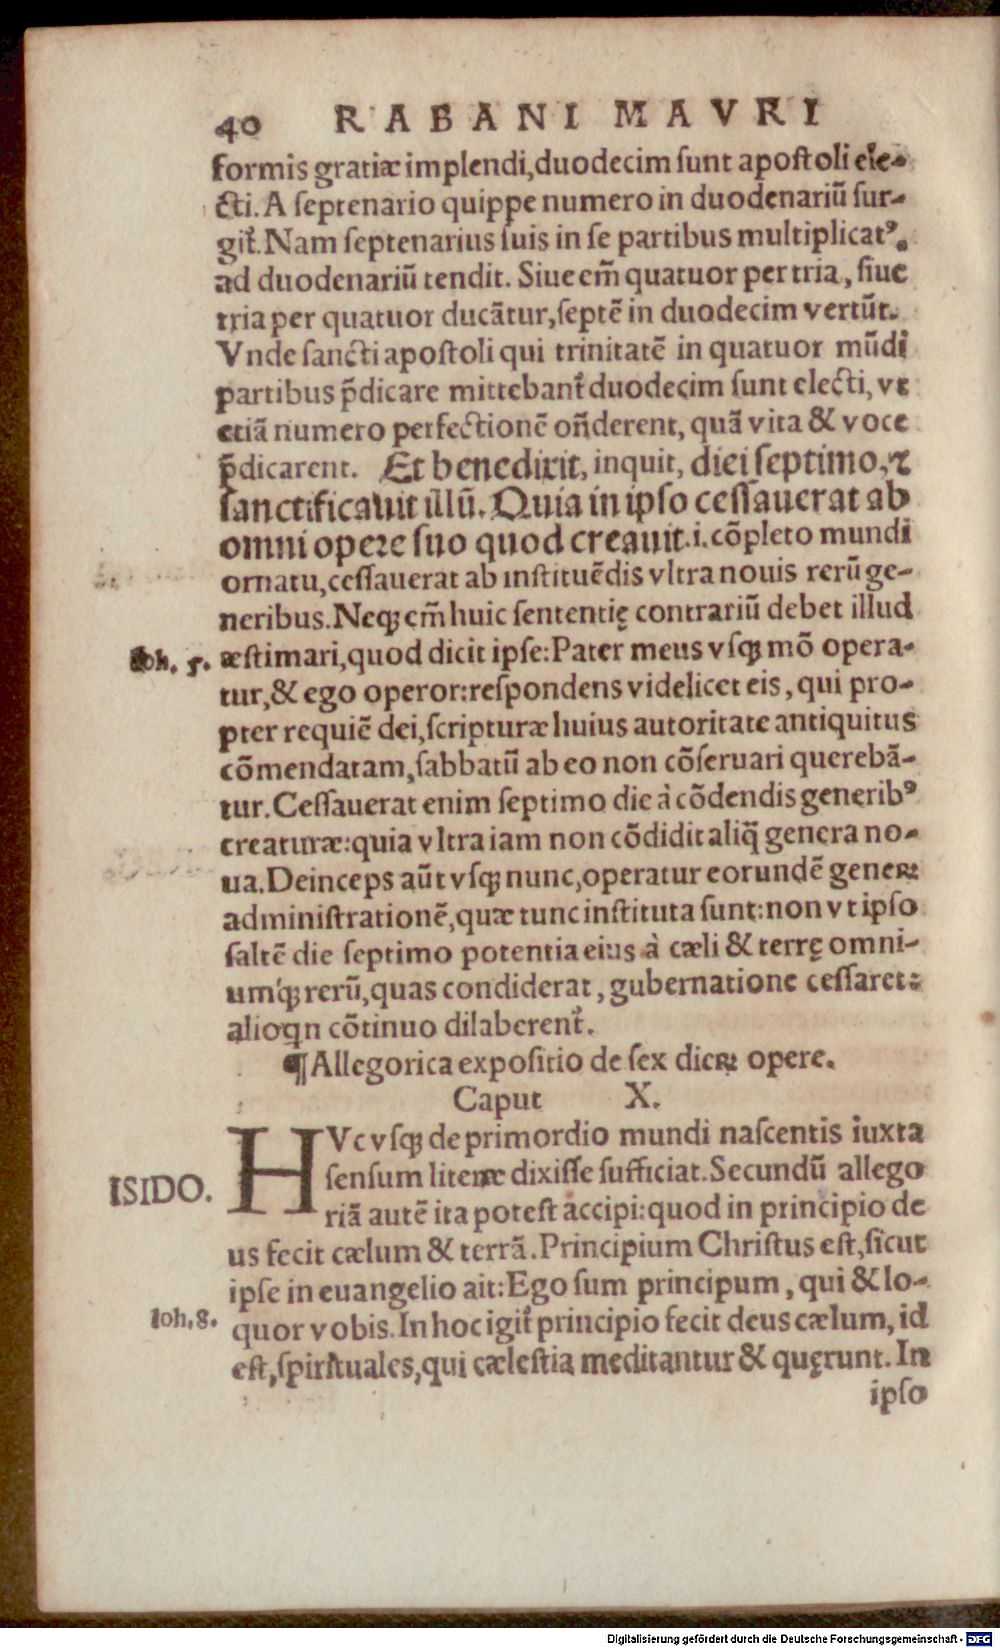 40 RABANI MAVRI
formis gratiæ implendi, duodecim sunt apostoli ele-
cti. A septenario quippe numero in duodenariũ sur-
git᷑. Nam septenarius suis in se partibus multiplicatꝰ,
ad duodenariũ tendit. Siue em̃ quatuor per tria, siue
tria per quatuor ducãtur, septẽ in duodecim vertũt.
Vnde sancti apostoli qui trinitatẽ in quatuor mũdi
partibus p̃dicare mittebant᷑ duodecim sunt electi, vt
etiã numero perfectionẽ oñderent, quã vita & voce
p̃dicarent. Et benedixit, inquit, diei septimo, ⁊
sanctificauit illũ. Quia in ipso cessauerat ab
omni opere suo quod creauit.i. cõpleto mundi
ornatu, cessauerat ab instituẽdis vltra nouis rerũ ge-
neribus. Neqꝫ em̃ huic sententię contrariũ debet illud
Ioh. 5. æstimari, quod dicit ipse: Pater meus vsqꝫ mõ opera-
tur, & ego operor: respondens videlicet eis, qui pro-
pter requiẽ dei, scripturæ huius autoritate antiquitus
cõmendatam, sabbatũ ab eo non cõseruari querebã-
tur. Cessauerat enim septimo die à cõdendis generibꝰ
creaturæ: quia vltra iam non cõdidit aliq̃ genera no-
ua. Deinceps aũt vsqꝫ nunc, operatur eorundẽ geneꝝ
administrationẽ, quæ tunc instituta sunt: non vt ipso
saltẽ die septimo potentia eius à cæli & terrę omni-
umq́ꝫ rerũ, quas condiderat, gubernatione cessaret:
alioqn cõtinuo dilaberent᷑.
¶ Allegorica expositio de sex dieꝝ opere.
Caput X.
HVc vsqꝫ de primordio mundi nascentis iuxta
sensum literæ dixisse sufficiat. Secundũ allego
ISIDO. riã autẽ ita potest accipi: quod in principio de
us fecit cælum & terrã. Principium Christus est, sicut
ipse in euangelio ait: Ego sum principum, qui & lo-
Ioh. 8. quor vobis. In hoc igit᷑ principio fecit deus cælum, id
est, spirituales, qui cælestia meditantur & quęrunt. In
ipso
Digitalisierung gefördert durch die Deutsche Forschungsgemeinschaft - DFG